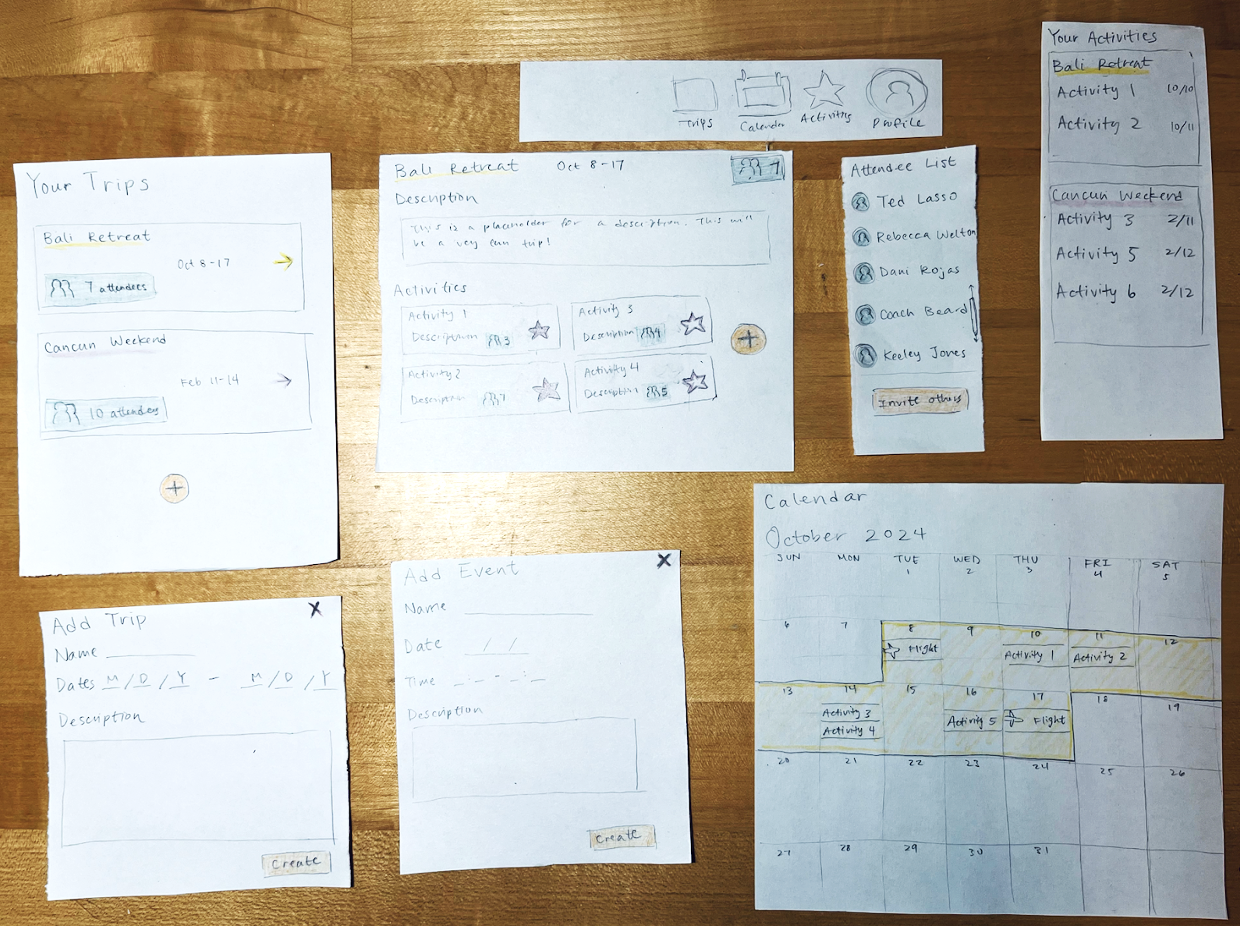 Trips
Calendar
Activities
Profile
Your Trips
Bali Retreat
Oct 8-17
7 attendees
Cancun Weekend
Feb 11-14
10 attendees
+
Bali Retreat Oct 8-17 7
Description
This is a placeholder for a description. This will
be a very fun trip!
Activities
Activity 1
Description 3
Activity 3
Description 4
Activity 2
Description 7
Activity 4
Description 5
+
Attendee List
Ted Lasso
Rebecca Welton
Dani Rojas
Coach Beard
Keeley Jones
Invite others
Your Activities
Bali Retreat
Activity 1 10/10
Activity 2 10/11
Cancun Weekend
Activity 3 2/11
Activity 5 2/12
Activity 6 2/12
Add Trip X
Name
Dates M/D/Y - M/D/Y
Description
Create
Add Event X
Name
Date / /
Time _:_ - _:_
Description
Create
Calendar
October 2024
SUN MON TUE WED THU FRI SAT
1 2 3 4 5
6 7 8 9 10 11 12
Flight Activity 1 Activity 2
13 14 15 16 17 18 19
Activity 3 Activity 5 Flight
Activity 4
20 21 22 23 24 25 26
27 28 29 30 31